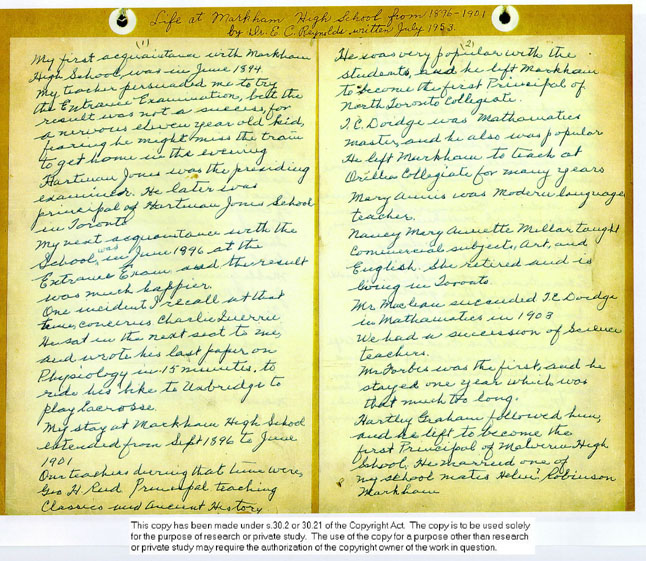 Life at Markham High School from 1896-1901
by Dr. E. C. Reynolds written July 1953.
(1)
My first acquaintance with Markham
High School, was in June 1894.
My teacher persuaded me to try
the Entrance Examination, but the
result was not a success, for
a nervous eleven year old kid,
fearing he might miss the train
to get home in the evening
Hartman Jones was the presiding
examiner. He later was
principal of Hartman Jones School
in Toronto
My next acquaintance with the
School, was in June 1896 at the
Entrance Exam. and the result
was much happier.
One incident I recall at that
time, concerns Charlie Querrie
He sat in the next seat to me,
and wrote his last paper on
Physiology in 15 minutes, to
ride his bike to Uxbridge to
play lacrosse.
My stay at Markham High School
extended from Sept 1896 to June
1901
Our teachers during that time were,
Geo H Reed Principal teaching
Classics and Ancient History
(2)
He was very popular with the
students, and he left Markham
to become the first Principal of
North Toronto Collegiate.
T.C. Doidge was Mathematics
master, and he also was popular
He left Markham to teach at
Orillia Collegiate for many years
Mary Annis was Modern languages
teacher.
Nancy Mary Annette Millar taught
Commercial subjects, Art, and
English. She retired and is
living in Toronto.
Mr. Maclean succeeded T.C. Doidge
in Mathematics in 1903
We had a succession of Science
teachers.
Mr Forbes was the first, and he
stayed one year which was
that much too long.
Hartley Graham followed him,
and he left to become the
first Principal of Malvern High
School. He married one of
my school mates Helen Robinson
Markham
This copy has been made under s.30.2 or 30.21 of the Copyright Act. The copy is to be used solely
for the purpose of research or private study. The use of the copy for a purpose other than research
or private study may require the authorization of the copyright owner of the work in question.